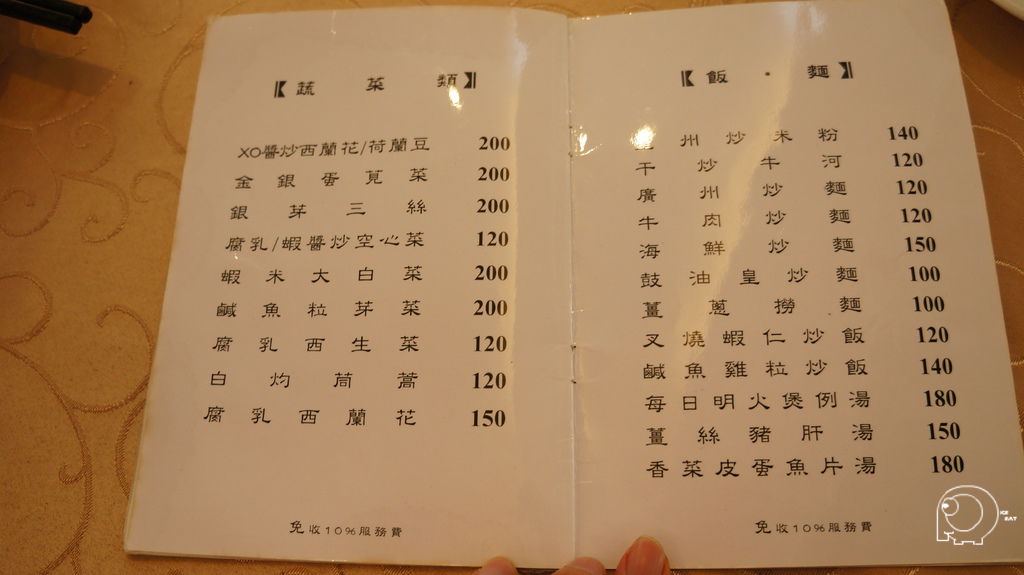 【蔬菜類】
XO醬炒西蘭花/荷蘭豆 200
金銀蛋莧菜 200
銀芽三絲 200
腐乳/蝦醬炒空心菜 120
蝦米大白菜 200
鹹魚粒芽菜 200
腐乳西生菜 120
白灼茼蒿 120
腐乳西蘭花 150
免收10%服務費
【飯·麵】
州炒米粉 140
干炒牛河 120
廣州炒麵 120
牛肉炒麵 120
海鮮炒麵 150
鼓油皇炒麵 100
薑蔥撈麵 100
叉燒蝦仁炒飯 120
鹹魚雞粒炒飯 140
每日明火煲例湯 180
薑絲豬肝湯 150
香菜皮蛋魚片湯 180
免收10%服務費